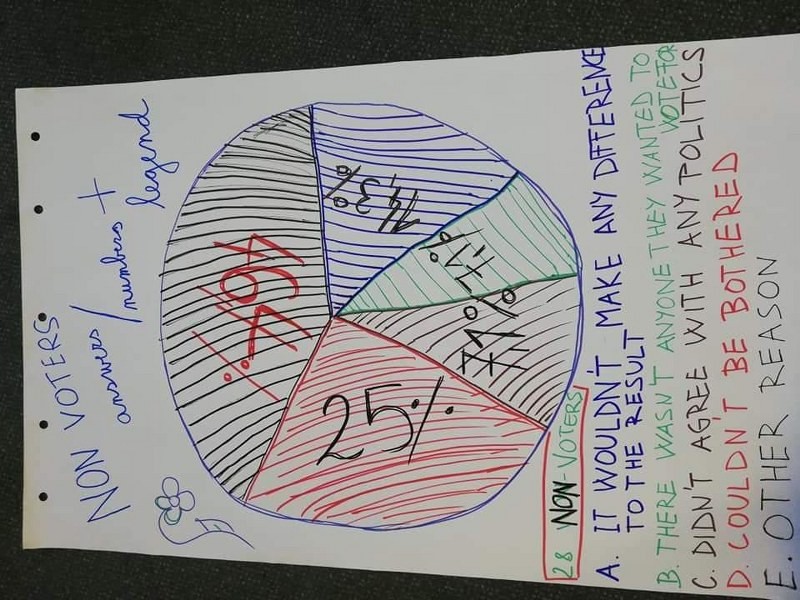 NON VOTERS
answers/numbers +
legend
14,3%
7,1%
7,1%
25%
46,4%
28 NON-VOTERS
A. IT WOULDN'T MAKE ANY DFFERENCE
TO THE RESULT
B. THERE WASN'T ANYONE THEY WANTED TO
VOTE FOR
C. DIDN'T AGREE WITH ANY POLITICS
D. COULDN'T BE BOTHERED
E. OTHER REASON